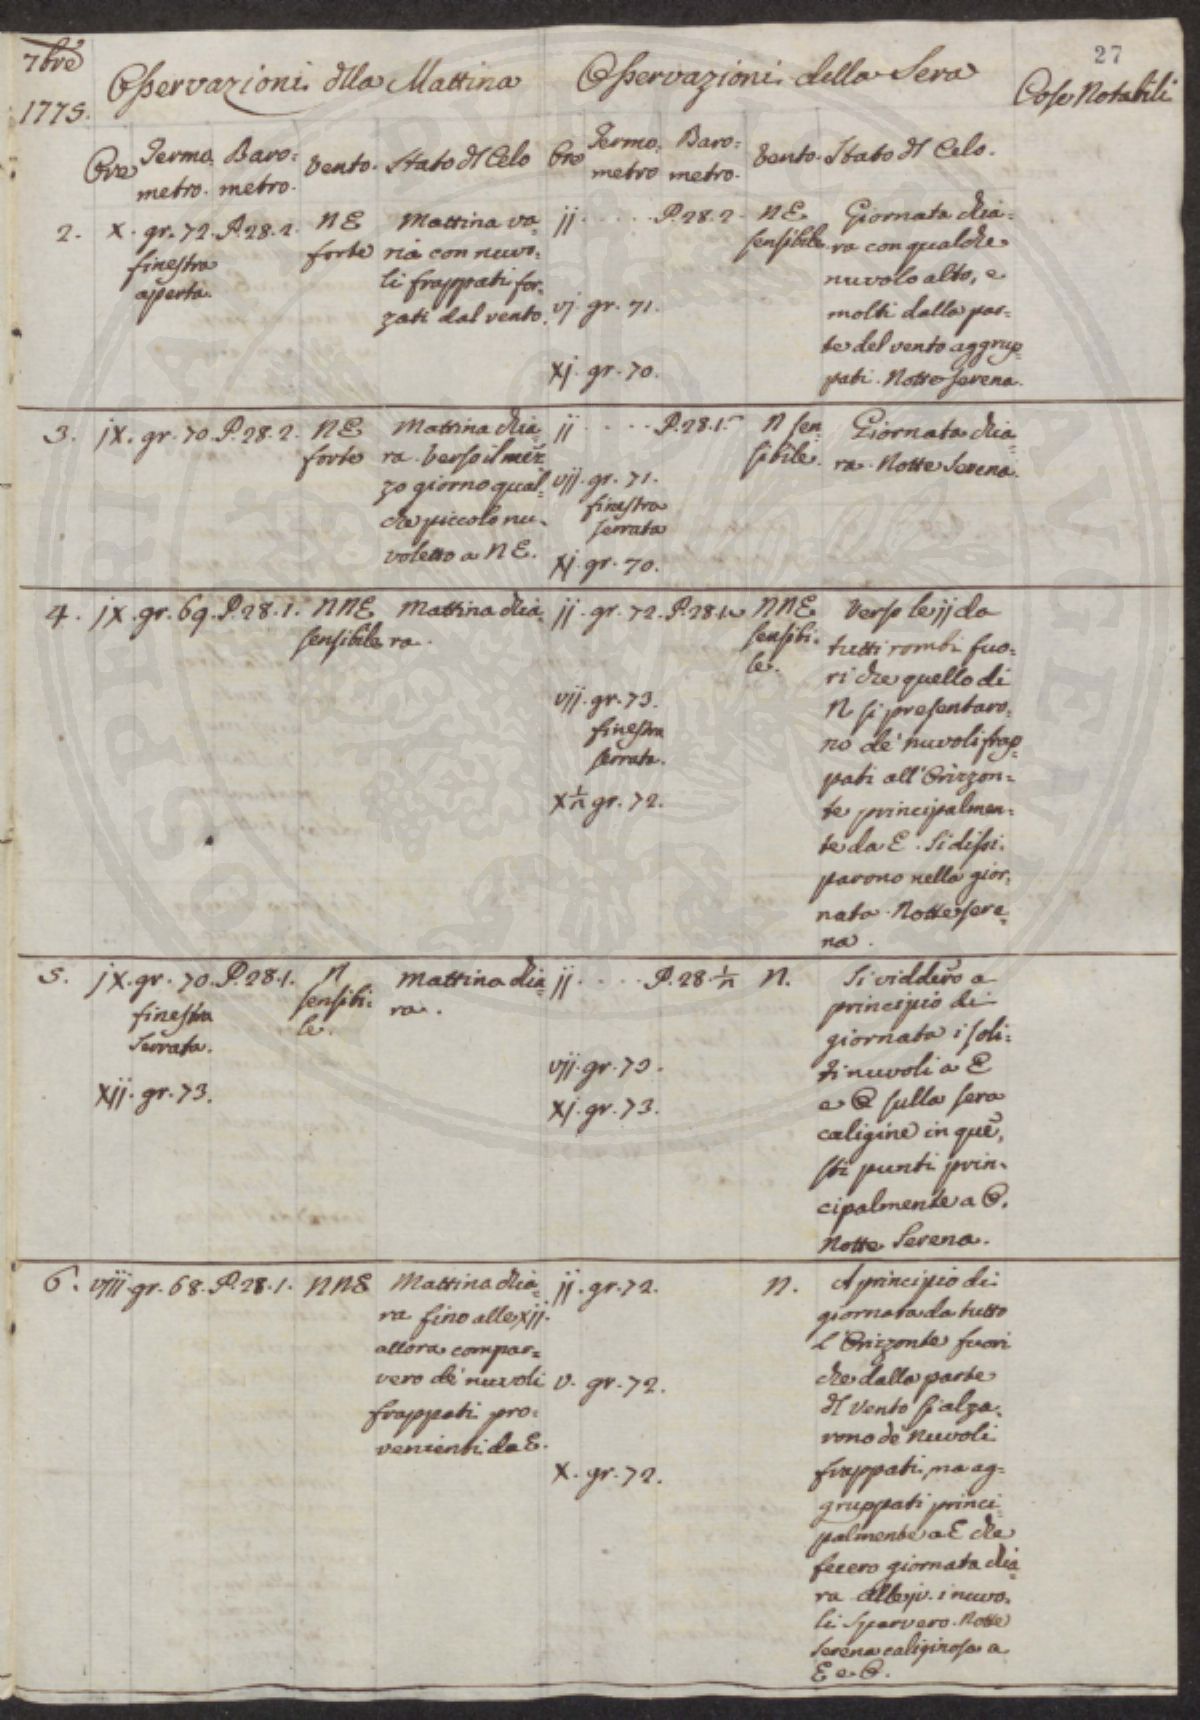 27
7bre
1775.
Osservazioni dlla Mattina
Osservazioni della Sera
Cose Notabili
Ore
Termo
metro.
Baro=
metro.
Vento.
Stato dl Celo
Ore
Termo
metro
Baro=
metro.
Vento.
Stato dl Celo.
2.
X. gr. 72. P. 28. 2.
finestra
aperta.
NE
forte
Mattina va
ria con nuvo=
li frappati for=
zati dal vento.
jj. . . . . P. 28. 2.
vj. gr. 71.
xj. gr. 70.
NE
sensibile
Giornata chia=
ra con qualche
nuvolo alto, e
molti dalla par=
te del vento aggrup
pati. Notte serena.
3.
jX. gr. 70. P. 28. 2.
NE
forte
Mattina chia
ra. Verso il mez
zo giorno qual=
che piccolo nu=
voletto a NE.
jj. . . . . P. 28. 1.
vij. gr. 71.
finestra
serrata
xj. gr. 70.
N sen
sibile.
Giornata chia
ra. Notte Serena.
4.
jX. gr. 69. P. 28. 1.
NNE
sensibile
Mattina chia
ra.
jj. gr. 72. P. 28.
vij. gr. 73.
finestra
serrata.
X 1/2 gr. 72.
NNE
sensibi=
le.
Verso le jj da
tutti rombi fuo=
ri che quello di
N si presentaro=
no de' nuvoli frap
pati all'Orizzon=
te principalmen=
te da E. Si dissi=
parono nella gior=
nata. Notte sere
na.
5.
jX. gr. 70. P. 28. 1.
finestra
Serrata.
Xij. gr. 73.
N
sensibi=
le.
Mattina chia
ra.
jj. . . . . P. 28. 1/2
vij. gr. 73.
xj. gr. 73.
N.
Si viddero a
principio di
giornata i soli=
ti nuvoli a E
e O sulla sera
caligine in que=
sti punti prin=
cipalmente a O.
Notte Serena.
6.
viij. gr. 68. P. 28. 1.
NNE
Mattina chia
ra fino alle xij.
allora compar=
vero de' nuvoli
frappati pro=
venienti da E.
jj. gr. 72.
v. gr. 72.
X. gr. 72.
N.
A principio di
giornata da tutto
l'Orizzonte fuori
che dalla parte
dl Vento si alza=
rono de' Nuvoli
frappati, ma ag=
gruppati princi
palmente a E che
fecero giornata chia
ra alle jv. i nuvo=
li sparvero. Notte
serena caliginosa a
E e O.